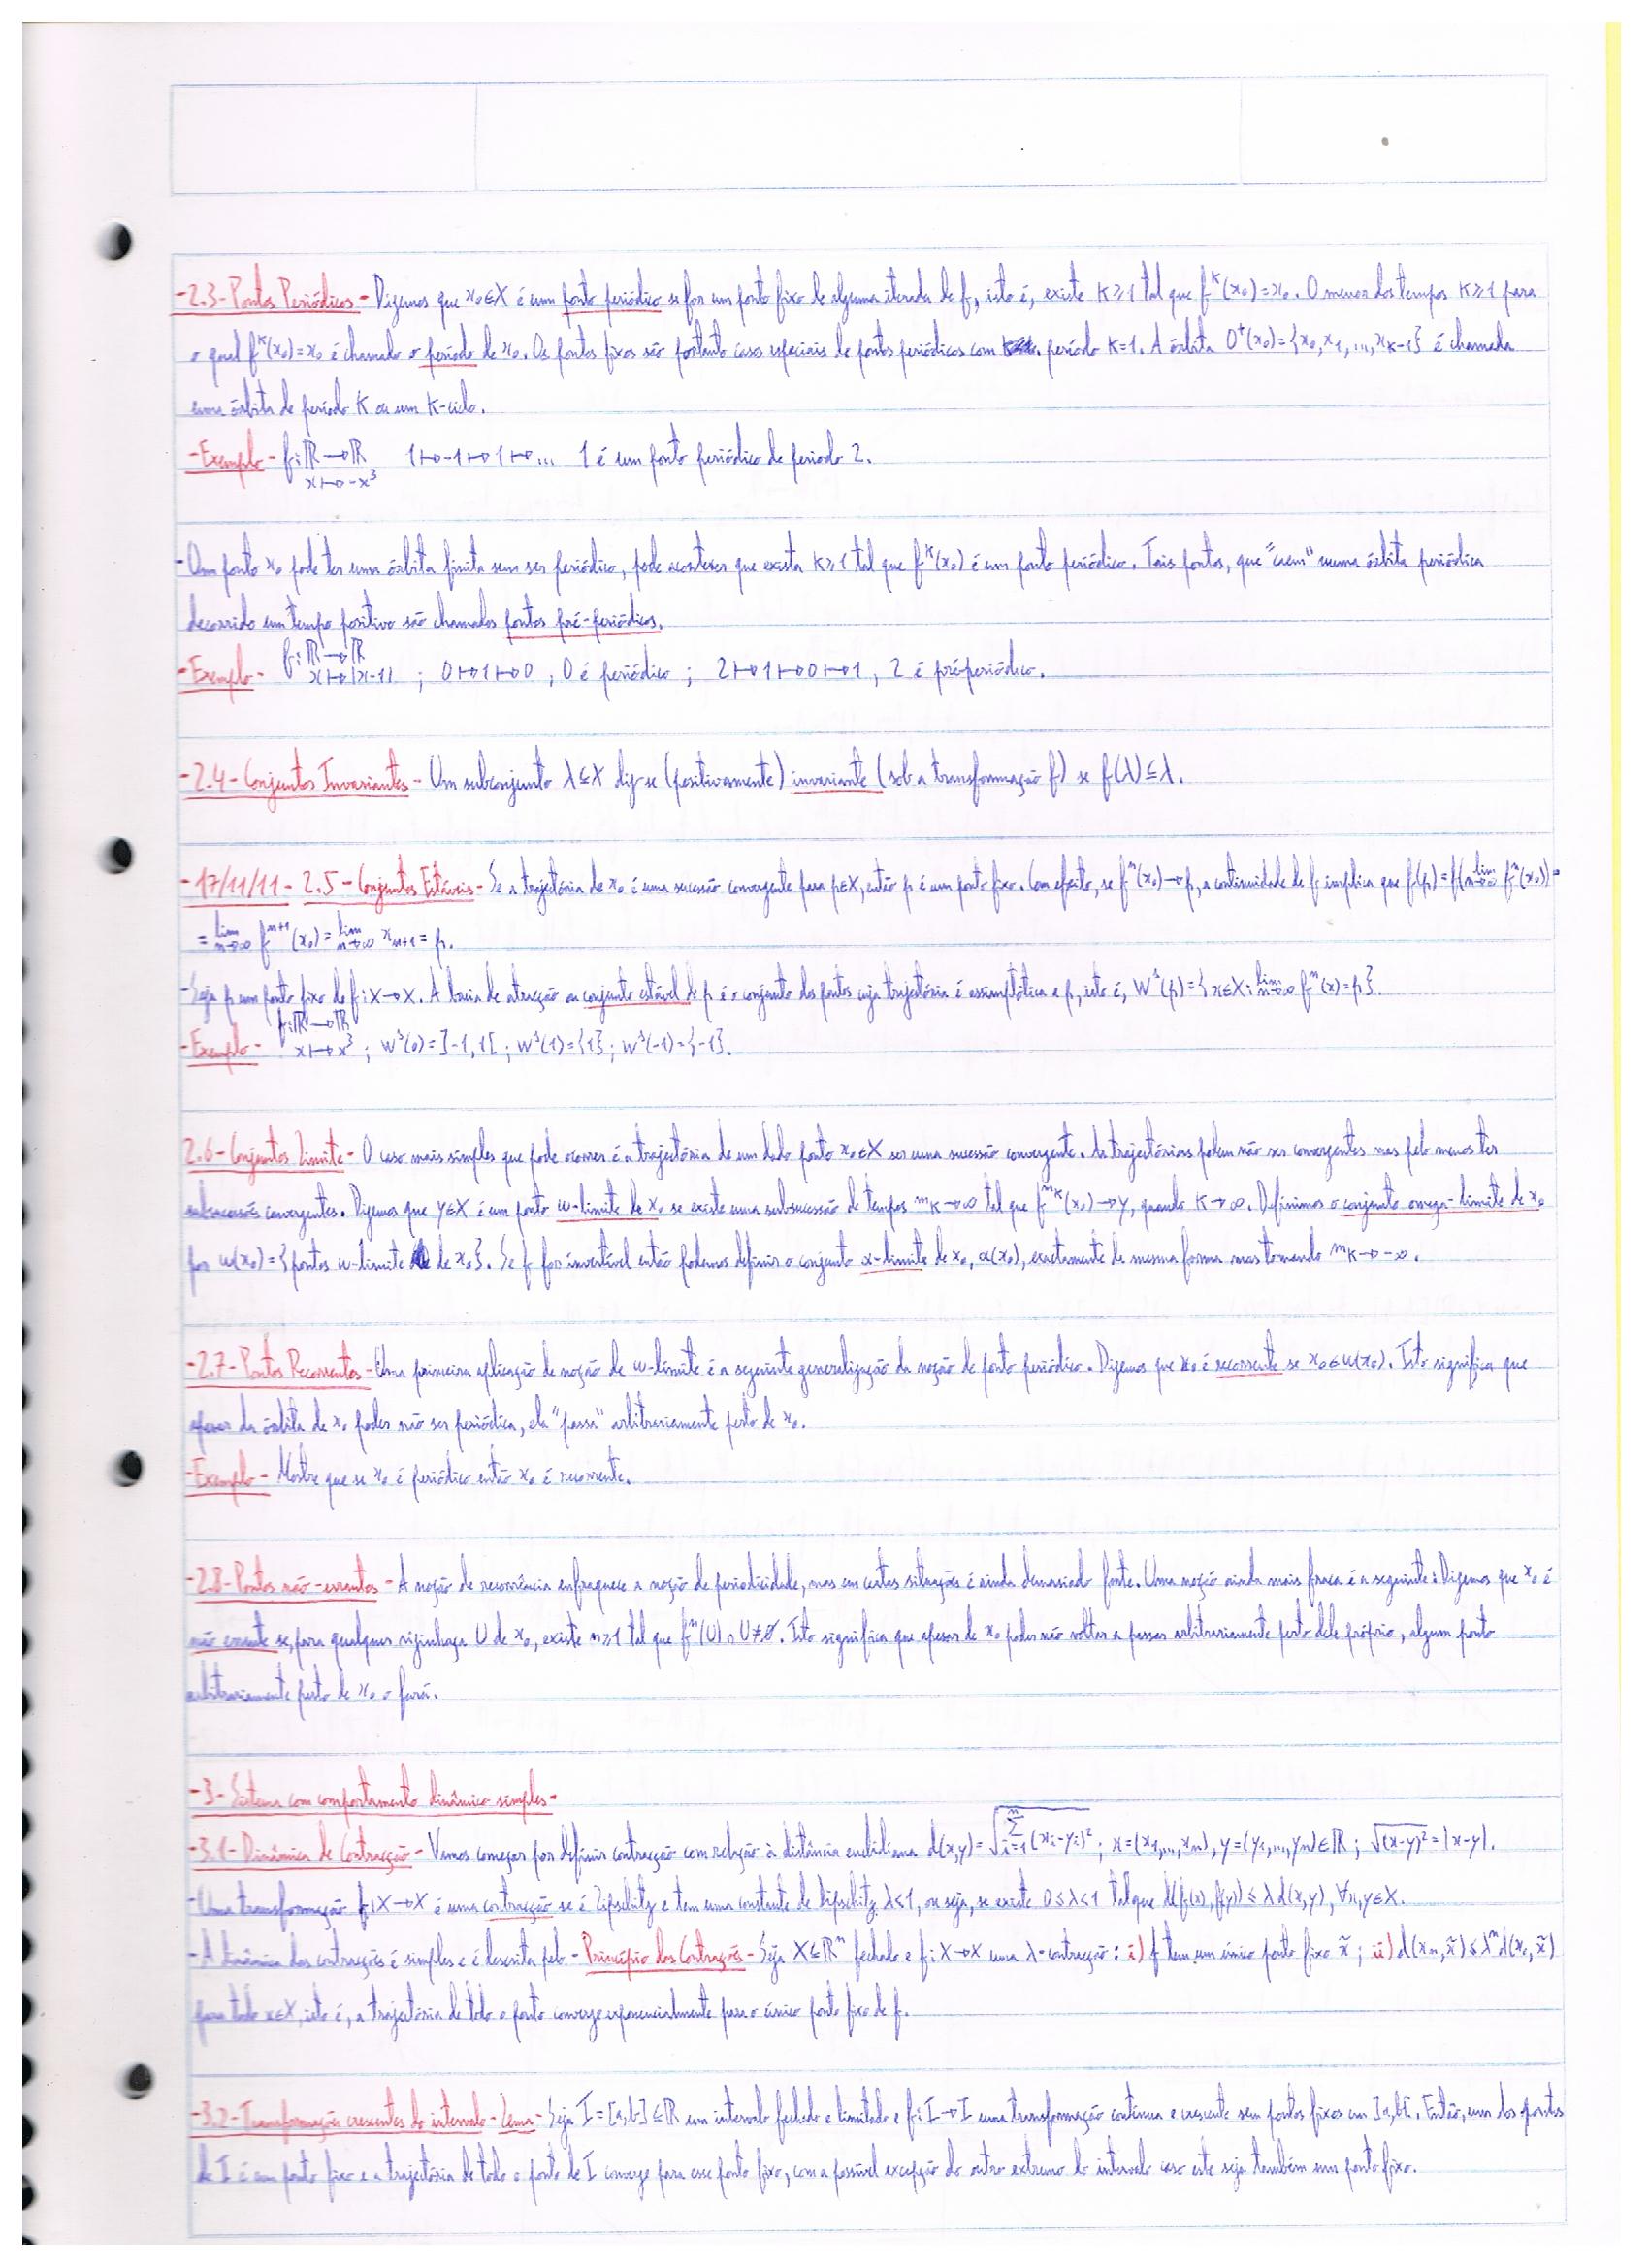 -2.3-Pontos Periódicos- Dizemos que x₀∈X é um ponto periódico se for um ponto fixo de alguma iterada de f, isto é, existe K≥1 tal que f^K(x₀)=x₀. O menor dos tempos K≥1 para
o qual f^K(x₀)=x₀ é chamado o período de x₀. Os pontos fixos são portanto casos especiais de pontos periódicos com período K=1. A órbita O⁺(x₀)={x₀,x₁,...,x_{K-1}} é chamada
uma órbita de período K ou um K-ciclo.
-Exemplo- f:ℝ→ℝ 1↦-1↦1↦... 1 é um ponto periódico de periodo 2.
x↦-x³
-Um ponto x₀ pode ter uma órbita finita sem ser periódico, pode acontecer que exista K≥1 tal que f^K(x₀) é um ponto periódico. Tais pontos, que "caem" numa órbita periódica
decorrido um tempo positivo são chamados pontos pré-periódicos.
-Exemplo- f:ℝ→ℝ
x↦|x-1| ; 0↦1↦0, 0 é periódico; 2↦1↦0↦1, 2 é pré-periódico.
-2.4-Conjuntos Invariantes- Um subconjunto λ⊆X diz-se (positivamente) invariante (sob a transformação f) se f(λ)⊆λ.
-17/11/11- 2.5-Conjuntos Estáveis- Se a trajetória de x₀ é uma sucessão convergente para p∈X, então p é um ponto fixo. Com efeito, se fⁿ(x₀)→p, a continuidade de f implica que f(p)=f(lim_{n→∞} fⁿ(x₀))=
=lim_{n→∞} f^{n+1}(x₀)=lim_{n→∞} x_{n+1}=p.
-Seja p um ponto fixo de f:X→X. A bacia de atracção ou conjunto estável de p é o conjunto dos pontos cuja trajetória é assimptótica a p, isto é, Wˢ(p)={x∈X: lim_{n→∞} fⁿ(x)=p}
f:ℝ→ℝ
-Exemplo- x↦x³ ; Wˢ(0)=]-1,1[; Wˢ(1)={1}; Wˢ(-1)={-1}.
2.6-Conjuntos Limite- O caso mais simples que pode ocorrer é a trajetória de um dado ponto x₀∈X ser uma sucessão convergente. As trajetórias podem não ser convergentes mas pelo menos ter
subsucessões convergentes. Dizemos que y∈X é um ponto ω-limite de x₀ se existe uma subsucessão de tempos n_K→∞ tal que f^{n_K}(x₀)→y, quando K→∞. Definimos o conjunto omega-limite de x₀
por ω(x₀)={pontos ω-limite de x₀}. Se f for invertível então podemos definir o conjunto α-limite de x₀, α(x₀), exactamente da mesma forma mas tomando n_K→-∞.
-2.7-Pontos Recorrentes- Uma primeira aplicação da noção de ω-limite é a seguinte generalização da noção de ponto periódico. Dizemos que x₀ é recorrente se x₀∈ω(x₀). Isto significa que
apesar da órbita de x₀ poder não ser periódica, ela "passa" arbitrariamente perto de x₀.
-Exemplo- Mostre que se x₀ é periódico então x₀ é recorrente.
-2.8-Pontos não-errantes- A noção de recorrência enfraquece a noção de periodicidade, mas em certas situações é ainda demasiado forte. Uma noção ainda mais fraca é a seguinte: Dizemos que x₀ é
não errante se, para qualquer vizinhança U de x₀, existe n≥1 tal que fⁿ(U)∩U≠∅. Isto significa que apesar de x₀ poder não voltar a passar arbitrariamente perto dele próprio, algum ponto
arbitrariamente perto de x₀ o fará.
-3-Sistema com comportamento dinâmico simples-
-3.1-Dinâmica de Contracção- Vamos começar por definir contracção com relação à distância euclidiana d(x,y)=√(Σ_{i=1}^n (xᵢ-yᵢ)²); x=(x₁,...,xₙ), y=(y₁,...,yₙ)∈ℝ; √(x-y)²=|x-y|.
-Uma transformação f:X→X é uma contracção se é Lipschitz e tem uma constante de Lipschitz λ<1, ou seja, se existe 0≤λ<1 tal que d(f(x),f(y))≤λd(x,y), ∀x,y∈X.
-A dinâmica das contracções é simples e é descrita pelo -Princípio das Contrações- Seja X⊆ℝⁿ fechado e f:X→X uma λ-contracção: i) f tem um único ponto fixo x̃; ii) d(xₙ,x̃)≤λⁿd(x₀,x̃)
para todo x∈X, isto é, a trajetória de todo o ponto converge exponencialmente para o único ponto fixo de f.
-3.2-Transformações crescentes do intervalo-Lema- Seja I=[a,b]⊆ℝ um intervalo fechado e limitado e f:I→I uma transformação contínua e crescente sem pontos fixos em ]a,b[. Então, um dos pontos
de I é um ponto fixo e a trajetória de todo o ponto de I converge para esse ponto fixo, com a possível excepção do outro extremo do intervalo caso este seja também um ponto fixo.